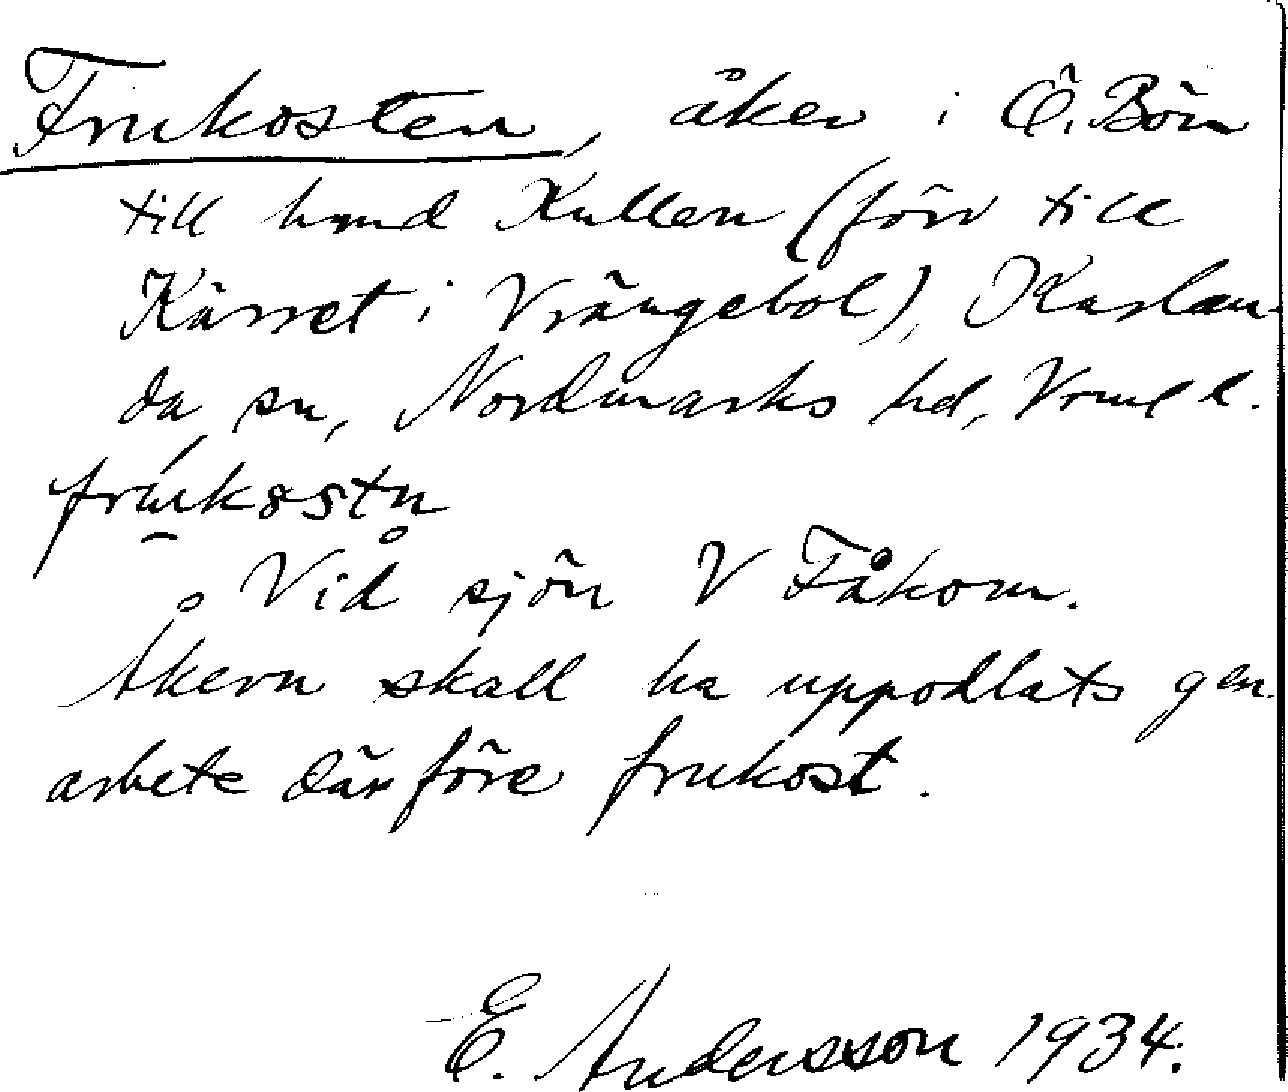 Frukosten, åker i Ö. Bön
till hmd Kullen (förr till
Kärret i Vrängebol), Karlan-
da sn, Nordmarks hd, Vrml l.
frúkostn
Vid sjön V Fåkom.
Åkern skall ha uppodlats gen
arbete där före frukost.
E. Andersson 1934.